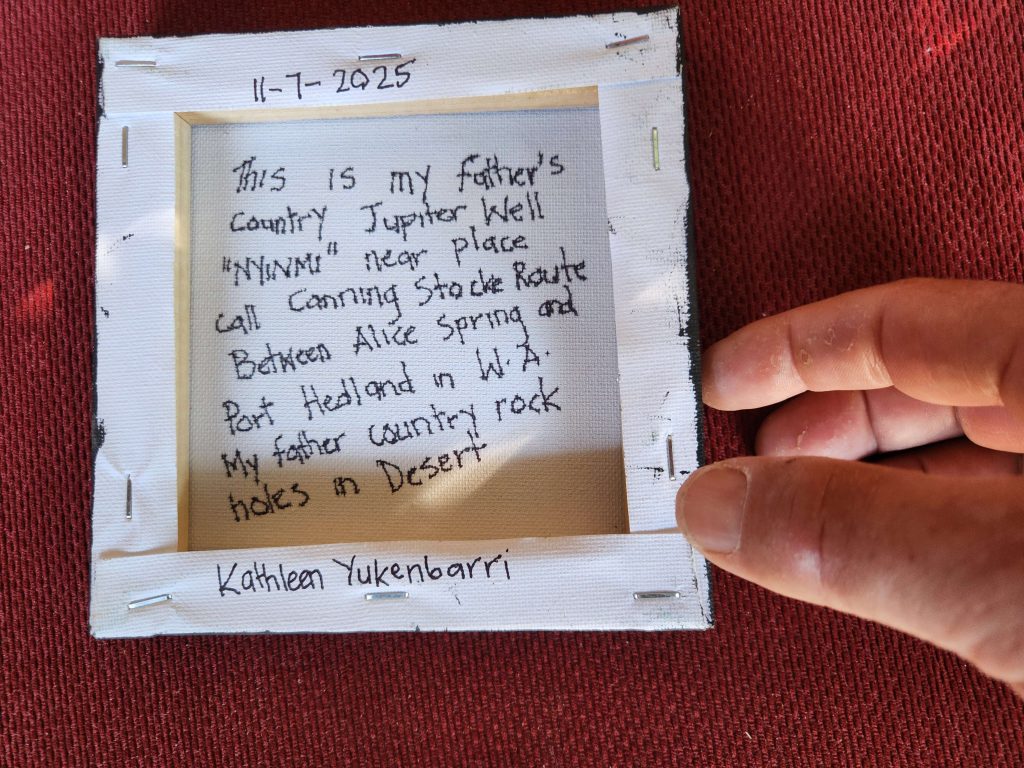 11-7-2025
This is my father's
country Jupiter Well
"NYINMI" near place
call Canning Stocke Route
Between Alice Spring and
Port Hedland in W.A.
My father country rock
holes in Desert
Kathleen Yukenbarri